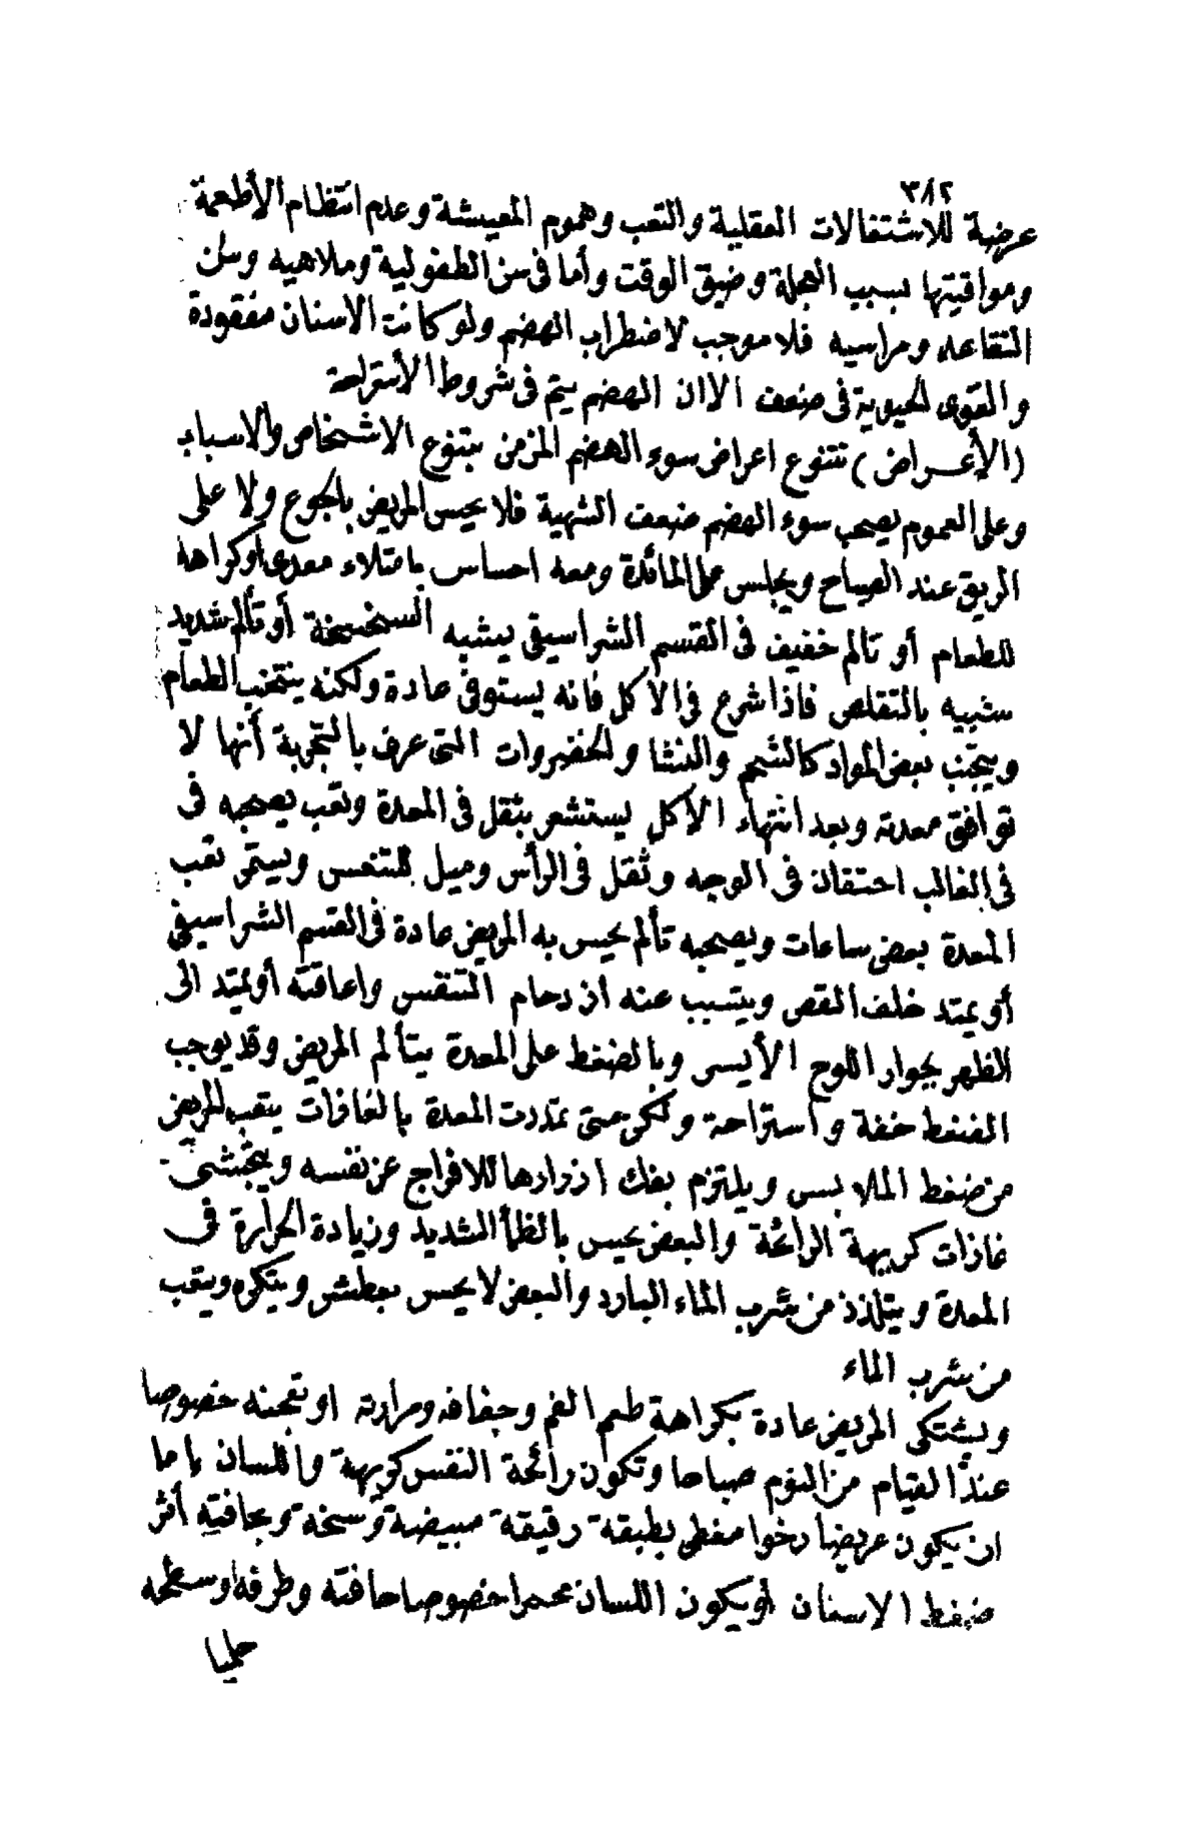 ٣٨٢
عرضة للاشتغالات العقلية والتعب وهموم المعيشة وعدم انتظام الأطعمة
ومواقيتها بسبب العجلة وضيق الوقت وأما فى سن الطفولية وملاهيه وسن
التقاعد ومراسيه فلا موجب لاضطراب الهضم ولو كانت الاسنان مفقودة
والقوى الحيوية فى ضعف الا ان الهضم يتم فى شروط الأستراحة
(الأعراض) تتنوع اعراض سوء الهضم المزمن بتنوع الاشخاص والاسباب
وعلى العموم يصحب سوء الهضم ضعف الشهية فلا يحس المريض بالجوع ولا على
الريق عند الصباح ويجلس على المائدة ومعه احساس بامتلاء معدى أو كراهة
للطعام أو تألم خفيف فى القسم الشراسيفى يشبه السخسخة أو تألم شديد
شبيه بالتقلص فاذا شرع فى الاكل فانه يستوفى عادة ولكنه ينتخب الطعام
ويجتنب بعض المواد كالشحم والنشا والخضروات التى عرف بالتجربة أنها لا
توافق معدته وبعد انتهاء الأكل يستشعر بثقل فى المعدة وتعب يصحبه فى
فى الغالب احتقان فى الوجه وثقل فى الرأس وميل للتنعس ويستمر تعب
المعدة بعض ساعات ويصحبه تألم يحس به المريض عادة فى القسم الشراسيفى
أو يمتد خلف القص ويتسبب عنه ازدحام التنفس واعاقته أو يمتد الى
الظهر بجوار اللوح الأيسر وبالضغط على المعدة يتألم المريض وقد يوجب
الضغط خفة وأستراحة ولكن متى تمددت المعدة بالغازات يتعب المريض
من ضغط الملابس ويلتزم بفك ازرارها للافراج عن نفسه ويتجشى
غازات كريهة الرائحة والبعض يحس بالظمأ الشديد وزيادة الحرارة فى
المعدة ويتلذذ من شرب الماء البارد والبعض لا يحس بعطش ويتكره ويتعب
من شرب الماء
ويشتكى المريض عادة بكراهة طعم الفم وجفافه ومرارته او تعجنه خصوصا
عند القيام من النوم صباحا وتكون رائحة النفس كريهة واللسان إما
ان يكون عريضا رخوا مغطى بطبقة رقيقة مبيضة وسخة وبحافته أثر
ضغط الاسنان أو يكون اللسان محمرا خصوصا حافته وطرفه وسطحه